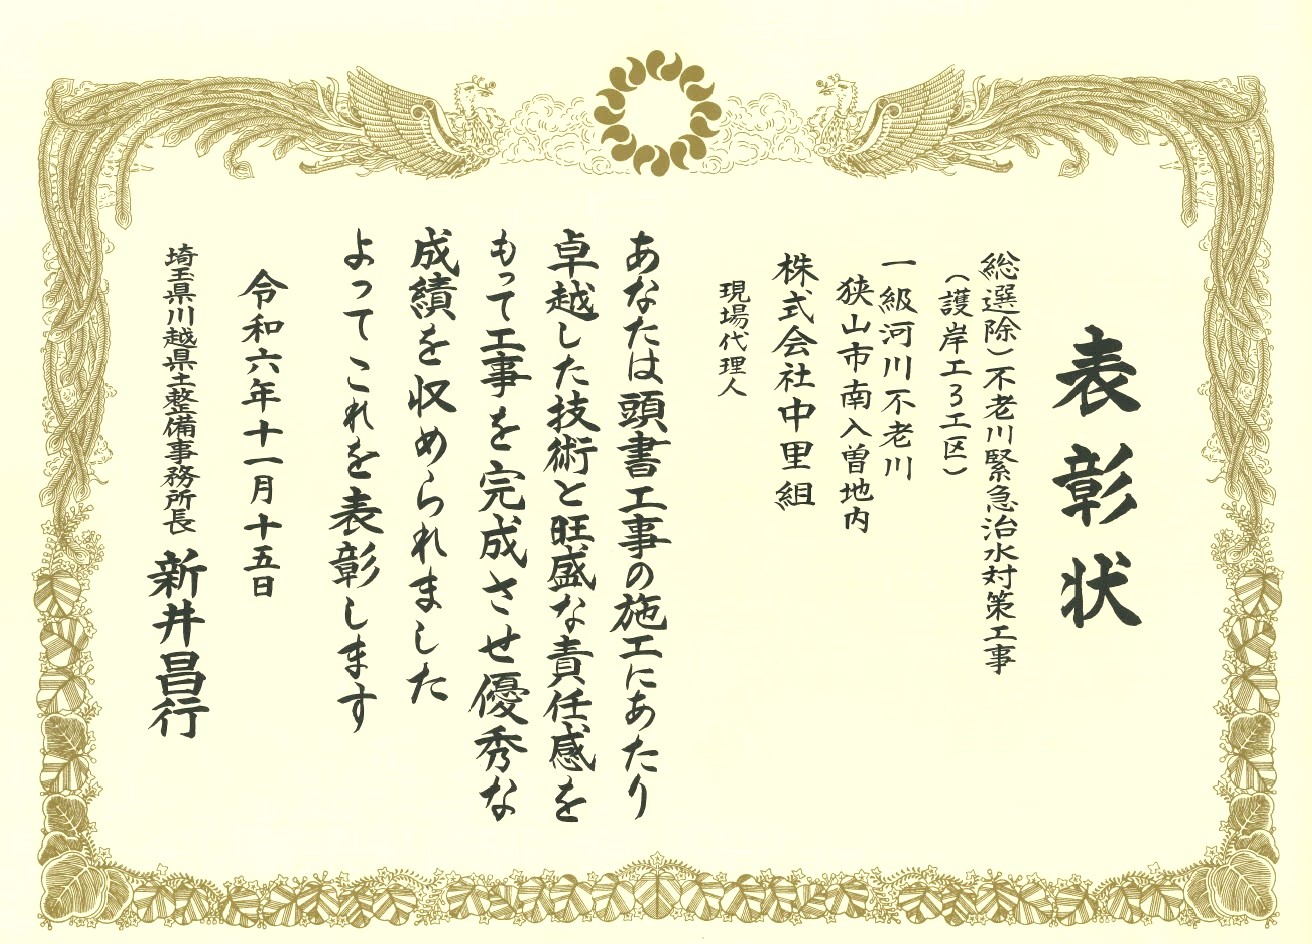 表彰状
総選除)不老川緊急治水対策工事
(護岸工3工区)
一級河川不老川
狭山市南入曽地内
株式会社中里組
現場代理人
あなたは頭書工事の施工にあたり
卓越した技術と旺盛な責任感を
もって工事を完成させ優秀な
成績を収められました
よってこれを表彰します
令和六年十一月十五日
埼玉県川越県土整備事務所長 新井昌行